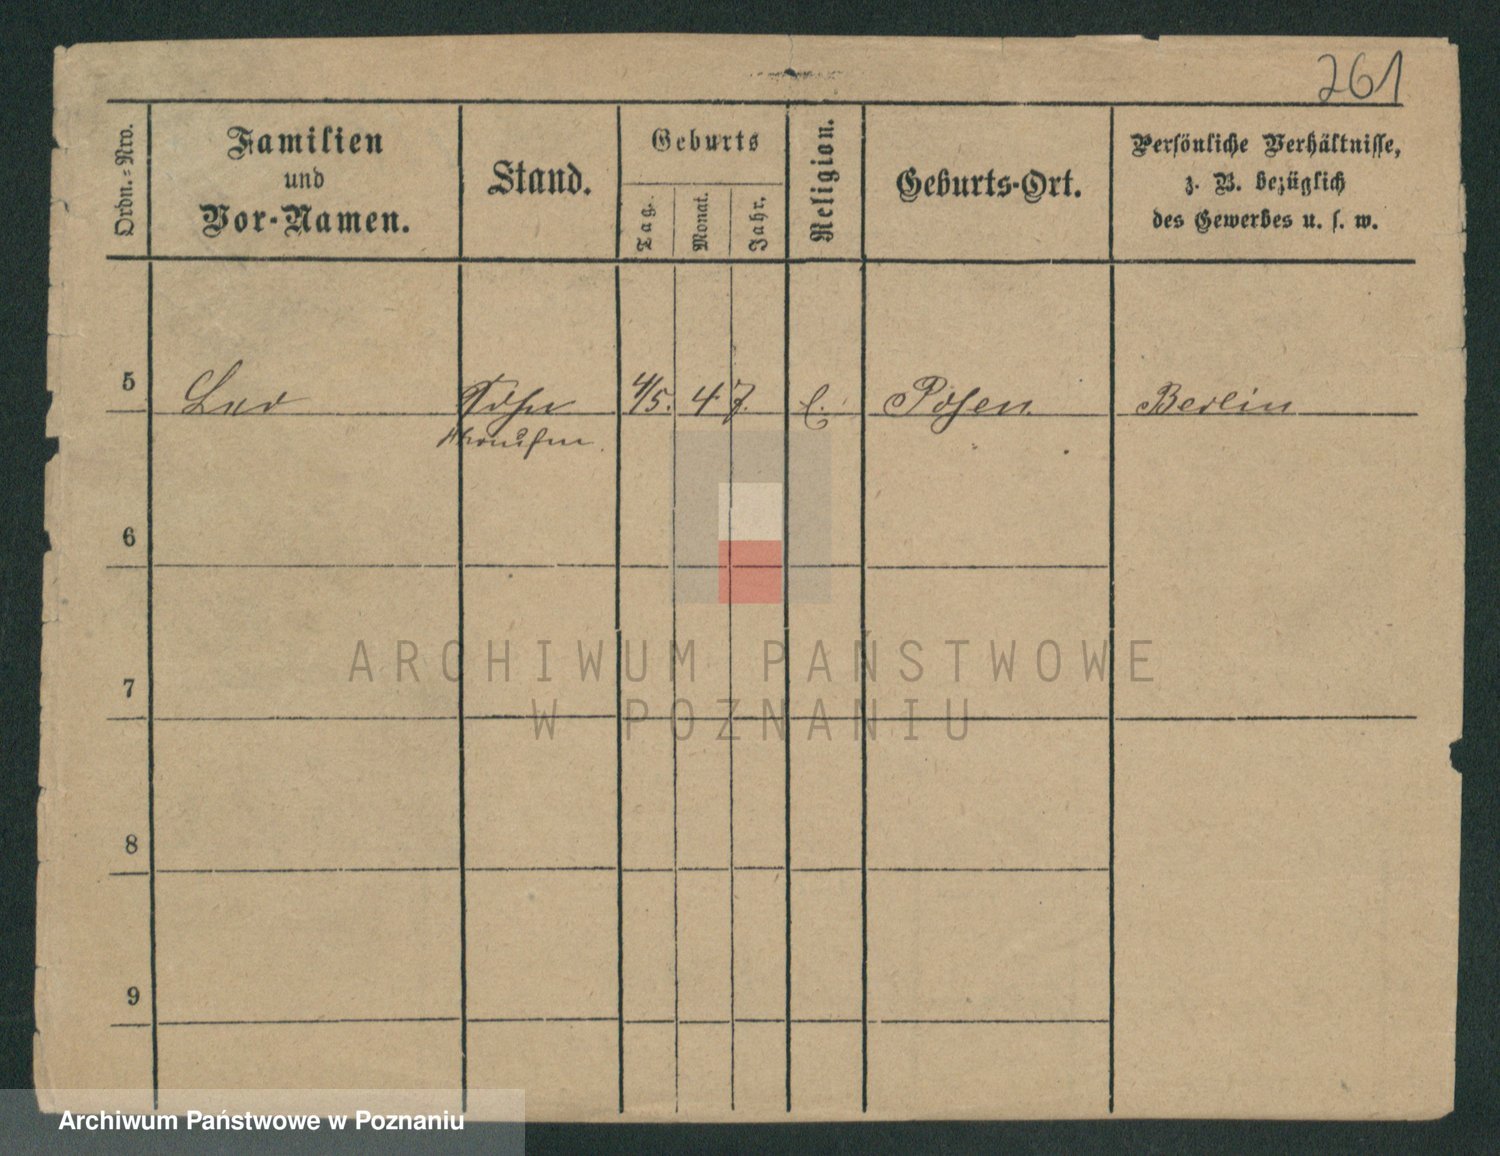 261
Ordn.-Nro.
Familien
und
Vor-Namen.
Stand.
Geburts
Tag.
Monat.
Jahr.
Religion.
Geburts-Ort.
Persönliche Verhältnisse,
z. B. bezüglich
des Gewerbes u. s. w.
5 Leo Sohn 4/5. 47. Posen. Berlin
6
7
8
9
ARCHIWUM PAŃSTWOWE
W POZNANIU
Archiwum Państwowe w Poznaniu